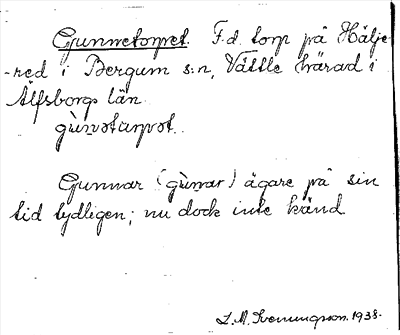 Gunnetorpet. F.d. torp på Hälje
-red i Bergum s:n, Vättle härad i
Älfsborgs län.
gùnətarpət.
Gunnar (gùnar) ägare på sin
tid tydligen; nu dock inte känd
L. M. Svenungsson. 1938.